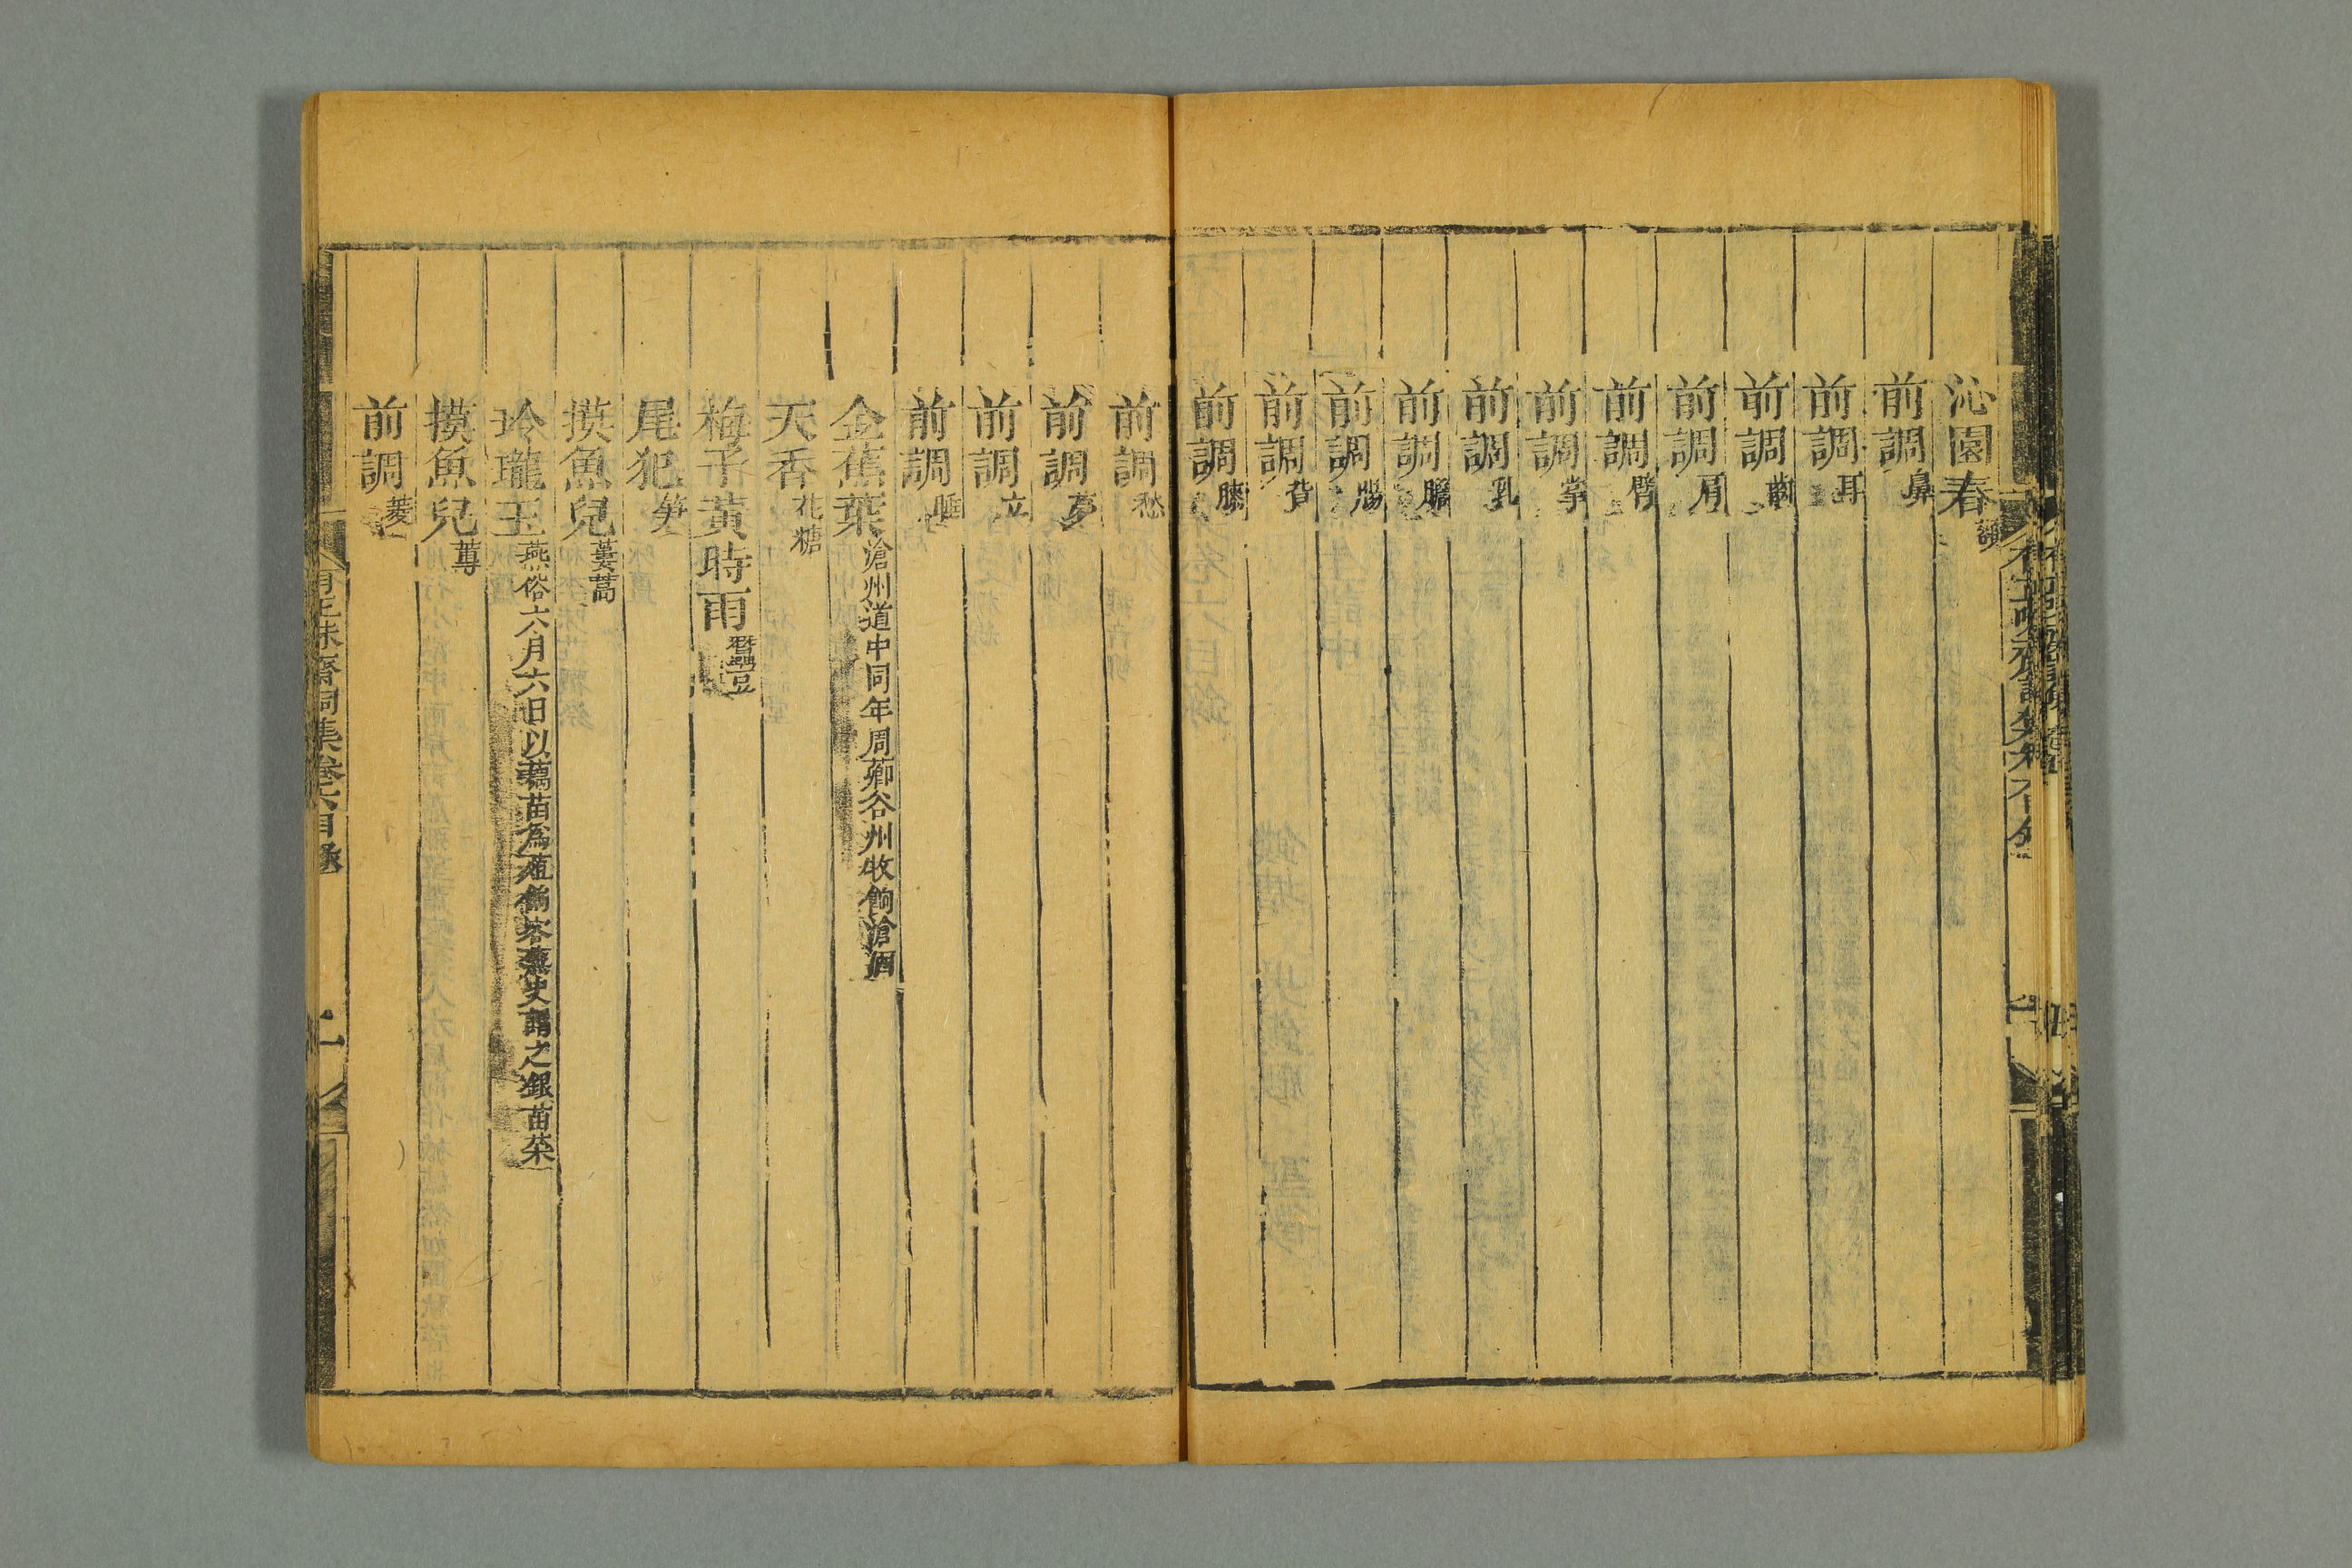 沁園春額
前調鼻
前調耳
前調齒
前調肩
前調臂
前調掌
前調乳
前調膽
前調腸
前調背
前調膝
前調愁
前調夢
前調立
前調睡
金蕉葉滄州道中同年周薌谷州牧餉滄酒
天香花糖
梅子黃時雨蠶豆
尾犯笋
摸魚兒蔞蒿
玲瓏玉燕俗六月六日以藕苗為殖餉客燕史謂之銀苗菜
摸魚兒蓴
前調菱
有正味齋詞集卷六目錄
二